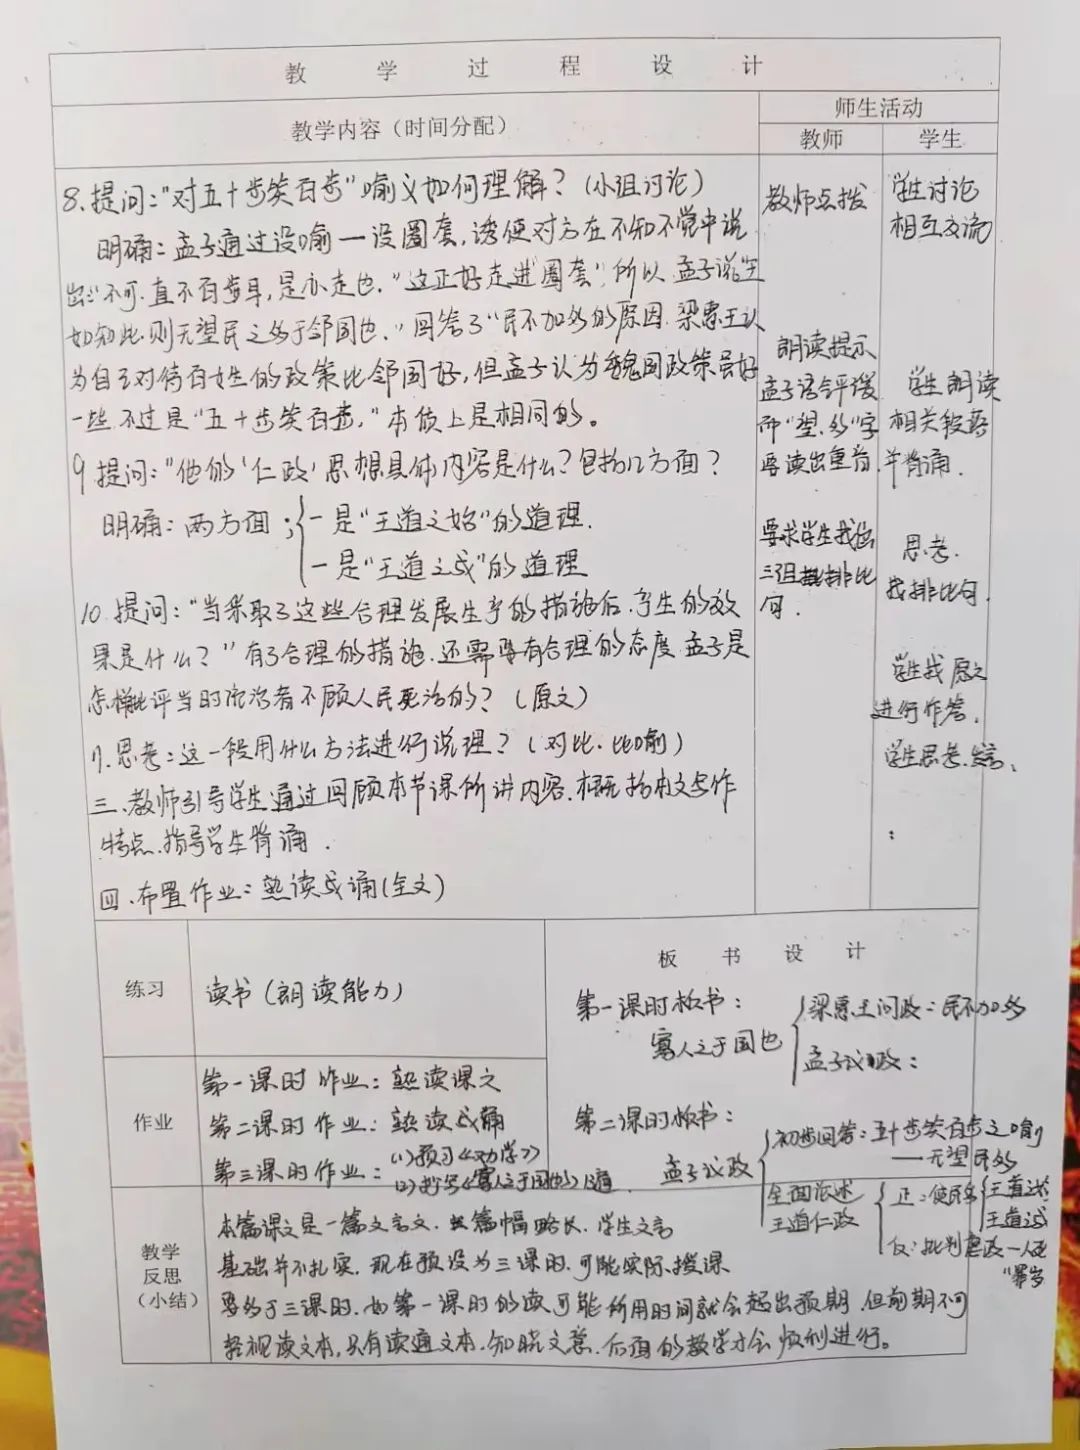 教 学 过 程 设 计
教学内容（时间分配）
师生活动
教师
学生
8.提问："对五十步笑百步"喻义如何理解？（小组讨论）
明确：孟子通过设喻一设圈套，诱使对方在不知不觉中说
出："不可.直不百步耳，是亦走也."这正好走进"圈套"，所以孟子说"王
如知此.则无望民之多于邻国也."回答了"民不加多的原因.梁惠王认
为自己对待百姓的政策比邻国好，但孟子认为魏国政策虽好
一些不过是"五十步笑百步，"本质上是相同的。
9提问："他的'仁政'思想具体内容是什么？包括几方面？
明确：两方面：
一是"王道之始"的道理.
一是"王道之成"的道理
10.提问："当采取了这些合理发展生产的措施后.产生的效
果是什么？"有了合理的措施.还需要有合理的态度.孟子是
怎样批评当时统治者不顾人民死活的？（原文）
11.思考：这一段用什么方法进行说理？（对比.比喻）
三.教师引导学生通过回顾本节课所讲内容.概括本文写作
特点.指导学生背诵.
四.布置作业：熟读成诵(全文)
教师点拨
朗读提示
孟子语含评议
而"望、多"字
要读出重音.
要求学生找出
三组排比
句.
学生讨论
相互交流
学生朗读
相关段落
并背诵.
思考.
找排比句.
学生找原文
进行作答.
学生思考.发言、
练习
读书（朗读能力）
作业
第一课时作业：熟读课文
第二课时作业：熟读成诵
第三课时作业：(1)预习《劝学》
(2)《寡人之于国也》
板 书 设 计
第一课时板书：
寡人之于国也
梁惠王问政：民不加多
孟子议政：
第二课时板书：
孟子议政
初步回答：五十步笑百步之喻
——无望民多
全面论述
王道仁政
正：使民多
王道
王道
反：批判虐政—人死
教学
反思
（小结）
本篇课文是一篇文言文.且篇幅略长.学生文言
基础并不扎实.现在预设为三课时.可能实际授课
要多于三课时.如第一课时的读可能所用时间就会超出预期.但前期不可
轻视读文本，只有读通文本.知晓文意.后面的教学才会顺利进行。